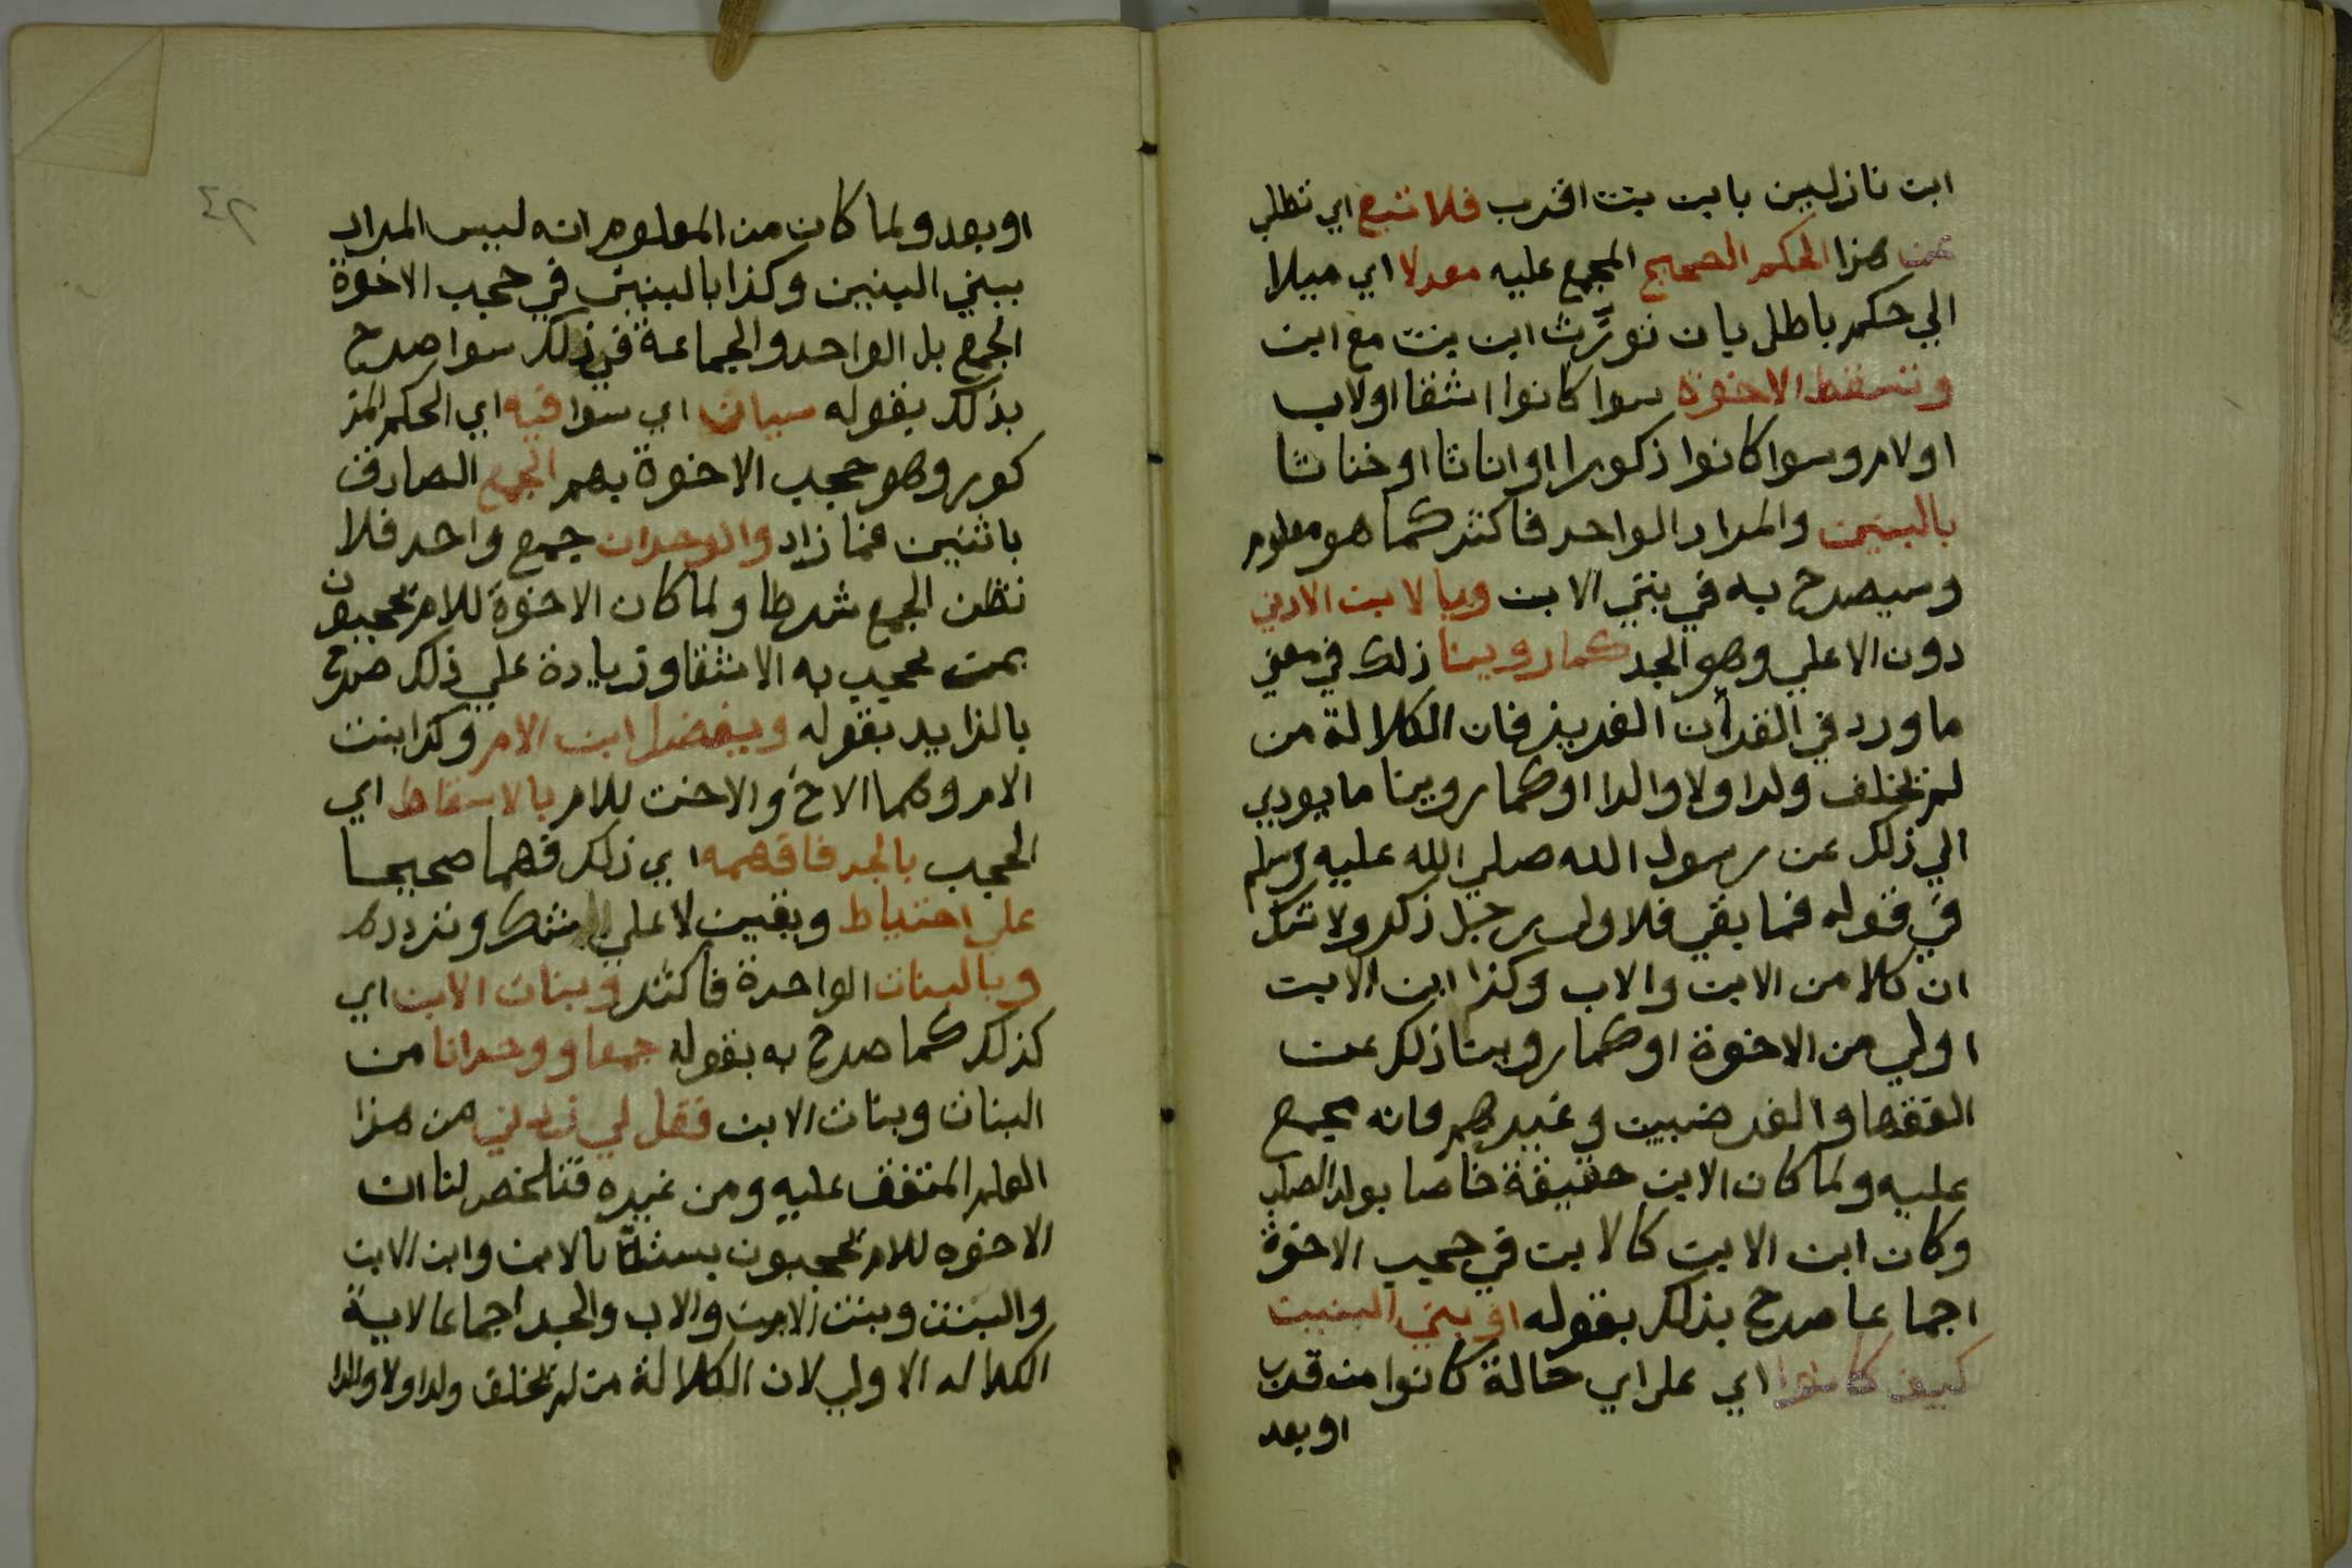 ابن نازلين بابن بنت اقرب فلا تبغ اي تطلب
عن هذا الحكم الصحيح المجمع عليه معدلا اي ميلا
الي حكم باطل بان تورّث ابن بنت مع ابن
وتسقط الاخوة سوا كانوا اشقا اولاب
اولام وسوا كانوا ذكورا اواناثا اوخناثا
بالبنين والمراد الواحد فاكثر كما هو معلوم
وسيصرح به في بني الابن وبالاب الادني
دون الاعلي وهو الجد كما روينا ذلك في معني
ما ورد في القرآن العزيز فان الكلالة من
لم يخلف ولدا ولا والدا اوكما روينا ما يودي
الي ذلك عن رسول الله صلي الله عليه وسلم
في قوله فما بقي فلاولي رجل ذكر ولا شك
ان كلا من الابن والاب وكذا ابن الابن
اولي من الاخوة اوكما روينا ذلك عن
الفقها والفرضيين وغيرهم فانه مجمع
عليه ولما كان الابن حقيقة خاصا بولد الصلب
وكان ابن الابن كالابن في حجب الاخوة
اجماعا صرح بذلك بقوله او ببني البنين
كيف كانوا اي علي اي حالة كانوا من قرب
او بعد
٤٢
او بعد ولما كان من المعلوم انه ليس المراد
ببني البنين وكذا بالبنين في حجب الاخوة
الجمع بل الواحد والجماعة في ذلك سوا صرح
بذلك بقوله سيان اي سوا فيه اي الحكم المذ
كور وهو حجب الاخوة بهم الجمع الصادق
باثنين فما زاد والوحدان جمع واحد فلا
تظن الجمع شرطا ولما كان الاخوة للام يحجبون
بمن يحجب به الاشقا وزيادة علي ذلك صرح
بالزايد بقوله ويفضل ابن الام وكذا بنت
الام وهما الاخ والاخت للام بالاسقاط اي
الحجب بالجد فافهمه اي ذلك فهما صحيحا
علي احتياط ويقين لا علي شك وتردد
وبالبنات الواحدة فاكثر وبنات الابن اي
كذلك كما صرح به بقوله جمعا ووحدانا من
البنات وبنات الابن فقل لي زدني من هذا
العلم المتفق عليه ومن غيره فتلخص لنا ان
الاخوه للام يحجبون بستة بالابن وابن الابن
والبنت وبنت الابن والاب والجد اجماعا لاية
الكلاله الاولي لان الكلالة من لم يخلف ولدا ولا والدا